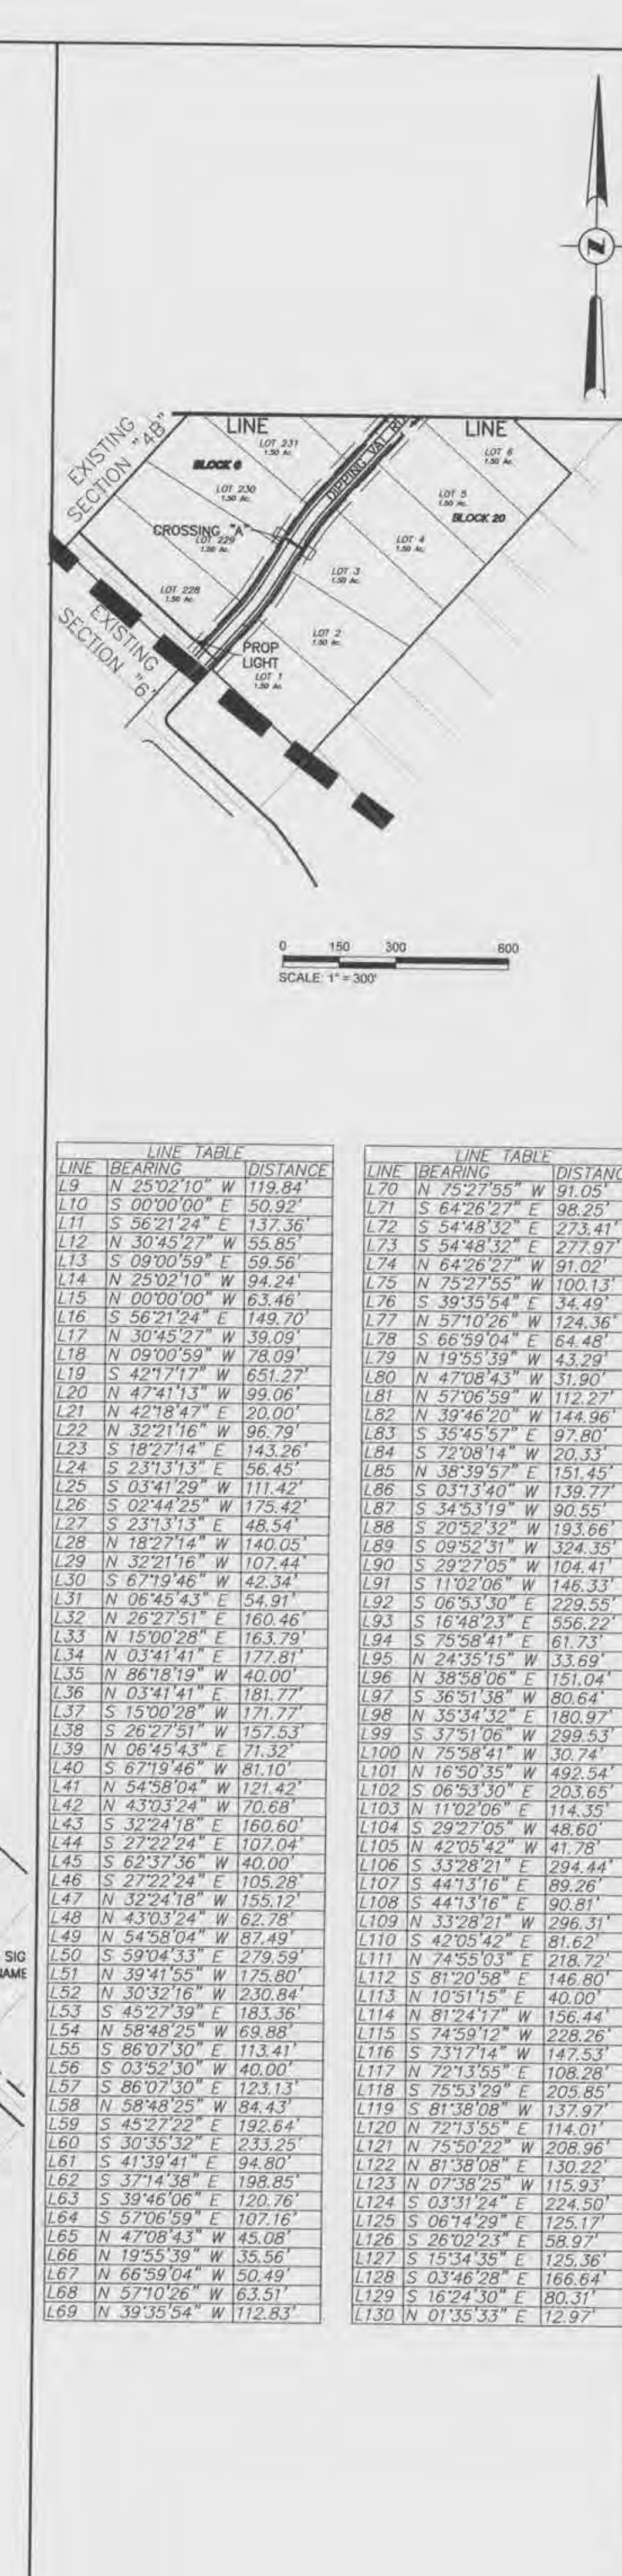 N
EXISTING
SECTION "4B"
LINE
LOT 231
1.50 Ac.
BLOCK 6
LOT 230
1.50 Ac.
CROSSING "A"
LOT 229
1.50 Ac.
LOT 228
1.50 Ac.
EXISTING
SECTION "6"
PROP
LIGHT
DIPPING VAT RD
LINE
LOT 6
1.50 Ac.
LOT 5
1.50 Ac.
BLOCK 20
LOT 4
1.50 Ac.
LOT 3
1.50 Ac.
LOT 2
1.50 Ac.
LOT 1
1.50 Ac.
0 150 300 600
SCALE: 1" = 300'
LINE TABLE
LINE BEARING DISTANCE
L9 N 25°02'10" W 119.84'
L10 S 00°00'00" E 50.92'
L11 S 56°21'24" E 137.36'
L12 N 30°45'27" W 55.85'
L13 S 09°00'59" E 59.56'
L14 N 25°02'10" W 94.24'
L15 N 00°00'00" W 63.46'
L16 S 56°21'24" E 149.70'
L17 N 30°45'27" W 39.09'
L18 N 09°00'59" W 78.09'
L19 S 42°17'17" W 651.27'
L20 N 47°41'13" W 99.06'
L21 N 42°18'47" E 20.00'
L22 N 32°21'16" W 96.79'
L23 S 18°27'14" E 143.26'
L24 S 23°13'13" E 56.45'
L25 S 03°41'29" W 111.42'
L26 S 02°44'25" W 175.42'
L27 S 23°13'13" E 48.54'
L28 N 18°27'14" W 140.05'
L29 N 32°21'16" W 107.44'
L30 S 67°19'46" W 42.34'
L31 N 06°45'43" E 54.91'
L32 N 26°27'51" E 160.46'
L33 N 15°00'28" E 163.79'
L34 N 03°41'41" E 177.81'
L35 N 86°18'19" W 40.00'
L36 N 03°41'41" E 181.77'
L37 S 15°00'28" W 171.77'
L38 S 26°27'51" W 157.53'
L39 N 06°45'43" E 71.32'
L40 S 67°19'46" W 81.10'
L41 N 54°58'04" W 121.42'
L42 N 43°03'24" W 70.68'
L43 S 32°24'18" E 160.60'
L44 S 27°22'24" E 107.04'
L45 S 62°37'36" W 40.00'
L46 S 27°22'24" E 105.28'
L47 N 32°24'18" W 155.12'
L48 N 43°03'24" W 62.78'
L49 N 54°58'04" W 87.49'
L50 S 59°04'33" E 279.59'
L51 N 39°41'55" W 175.80'
L52 N 30°32'16" W 230.84'
L53 S 45°27'39" E 183.36'
L54 N 58°48'25" W 69.88'
L55 S 86°07'30" E 113.41'
L56 S 03°52'30" W 40.00'
L57 S 86°07'30" E 123.13'
L58 N 58°48'25" W 84.43'
L59 S 45°27'22" E 192.64'
L60 S 30°35'32" E 233.25'
L61 S 41°39'41" E 94.80'
L62 S 37°14'38" E 198.85'
L63 S 39°46'06" E 120.76'
L64 S 57°06'59" E 107.16'
L65 N 47°08'43" W 45.08'
L66 N 19°55'39" W 35.56'
L67 N 66°59'04" W 50.49'
L68 N 57°10'26" W 63.51'
L69 N 39°35'54" W 112.83'
LINE TABLE
LINE BEARING DISTANC
L70 N 75°27'55" W 91.05'
L71 S 64°26'27" E 98.25'
L72 S 54°48'32" E 273.41'
L73 S 54°48'32" E 277.97'
L74 N 64°26'27" W 91.02'
L75 N 75°27'55" W 100.13'
L76 S 39°35'54" E 34.49'
L77 N 57°10'26" W 124.36'
L78 S 66°59'04" E 64.48'
L79 N 19°55'39" W 43.29'
L80 N 47°08'43" W 31.90'
L81 N 57°06'59" W 112.27'
L82 N 39°46'20" W 144.96'
L83 S 35°45'57" E 97.80'
L84 S 72°08'14" W 20.33'
L85 N 38°39'57" E 151.45'
L86 S 03°13'40" W 139.77'
L87 S 34°53'19" W 90.55'
L88 S 20°52'32" W 193.66'
L89 S 09°52'31" W 324.35'
L90 S 29°27'05" W 104.41'
L91 S 11°02'06" W 146.33'
L92 S 06°53'30" E 229.55'
L93 S 16°48'23" E 556.22'
L94 S 75°58'41" E 61.73'
L95 N 24°35'15" W 33.69'
L96 N 38°58'06" E 151.04'
L97 S 36°51'38" W 80.64'
L98 N 35°34'32" E 180.97'
L99 S 37°51'06" W 299.53'
L100 N 75°58'41" W 30.74'
L101 N 16°50'35" W 492.54'
L102 S 06°53'30" E 203.65'
L103 N 11°02'06" E 114.35'
L104 S 29°27'05" W 48.60'
L105 N 42°05'42" W 41.78'
L106 S 33°28'21" E 294.44'
L107 S 44°13'16" E 89.26'
L108 S 44°13'16" E 90.81'
L109 N 33°28'21" W 296.31'
L110 S 42°05'42" E 81.62'
L111 N 74°55'03" E 218.72'
L112 S 81°20'58" E 146.80'
L113 N 10°51'15" E 40.00'
L114 N 81°24'17" W 156.44'
L115 S 74°59'12" W 228.26'
L116 S 73°17'14" W 147.53'
L117 N 72°13'55" E 108.28'
L118 S 75°53'29" E 205.85'
L119 S 81°38'08" W 137.97'
L120 N 72°13'55" E 114.01'
L121 N 75°50'22" W 208.96'
L122 N 81°38'08" E 130.22'
L123 N 07°38'25" W 115.93'
L124 S 03°31'24" E 224.50'
L125 S 06°14'29" E 125.17'
L126 S 26°02'23" E 58.97'
L127 S 15°34'35" E 125.36'
L128 S 03°46'28" E 166.64'
L129 S 16°24'30" E 80.31'
L130 N 01°35'33" E 12.97'
SIG
NAME